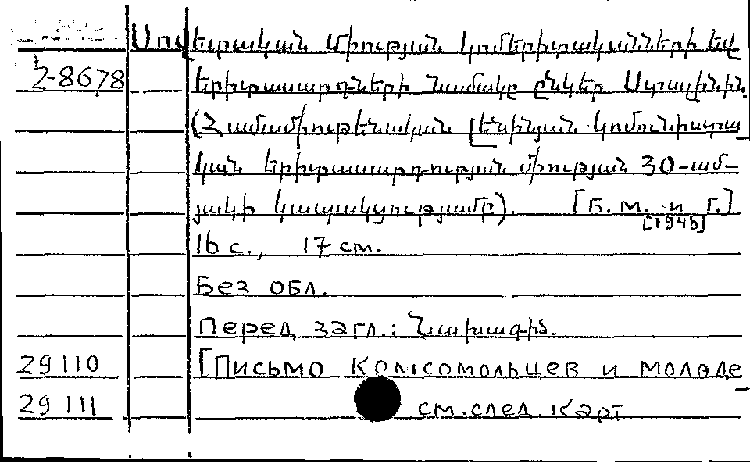 Սովետական Միության կոմերիտականների եվ
2-8678 երիտասարդների նամակը ընկեր Ստալինին
(Համամիութենական Լենինյան կոմունիստա
կան երիտասարդության միության 30-ամ-
յակի կապակցությամբ). [Б. м. и г.]
[1948]
16 с., 17 см.
Без обл.
Перед загл.: Նախագիծ.
29110 [Письмо комсомольцев и молоде
29111 см. след. карт